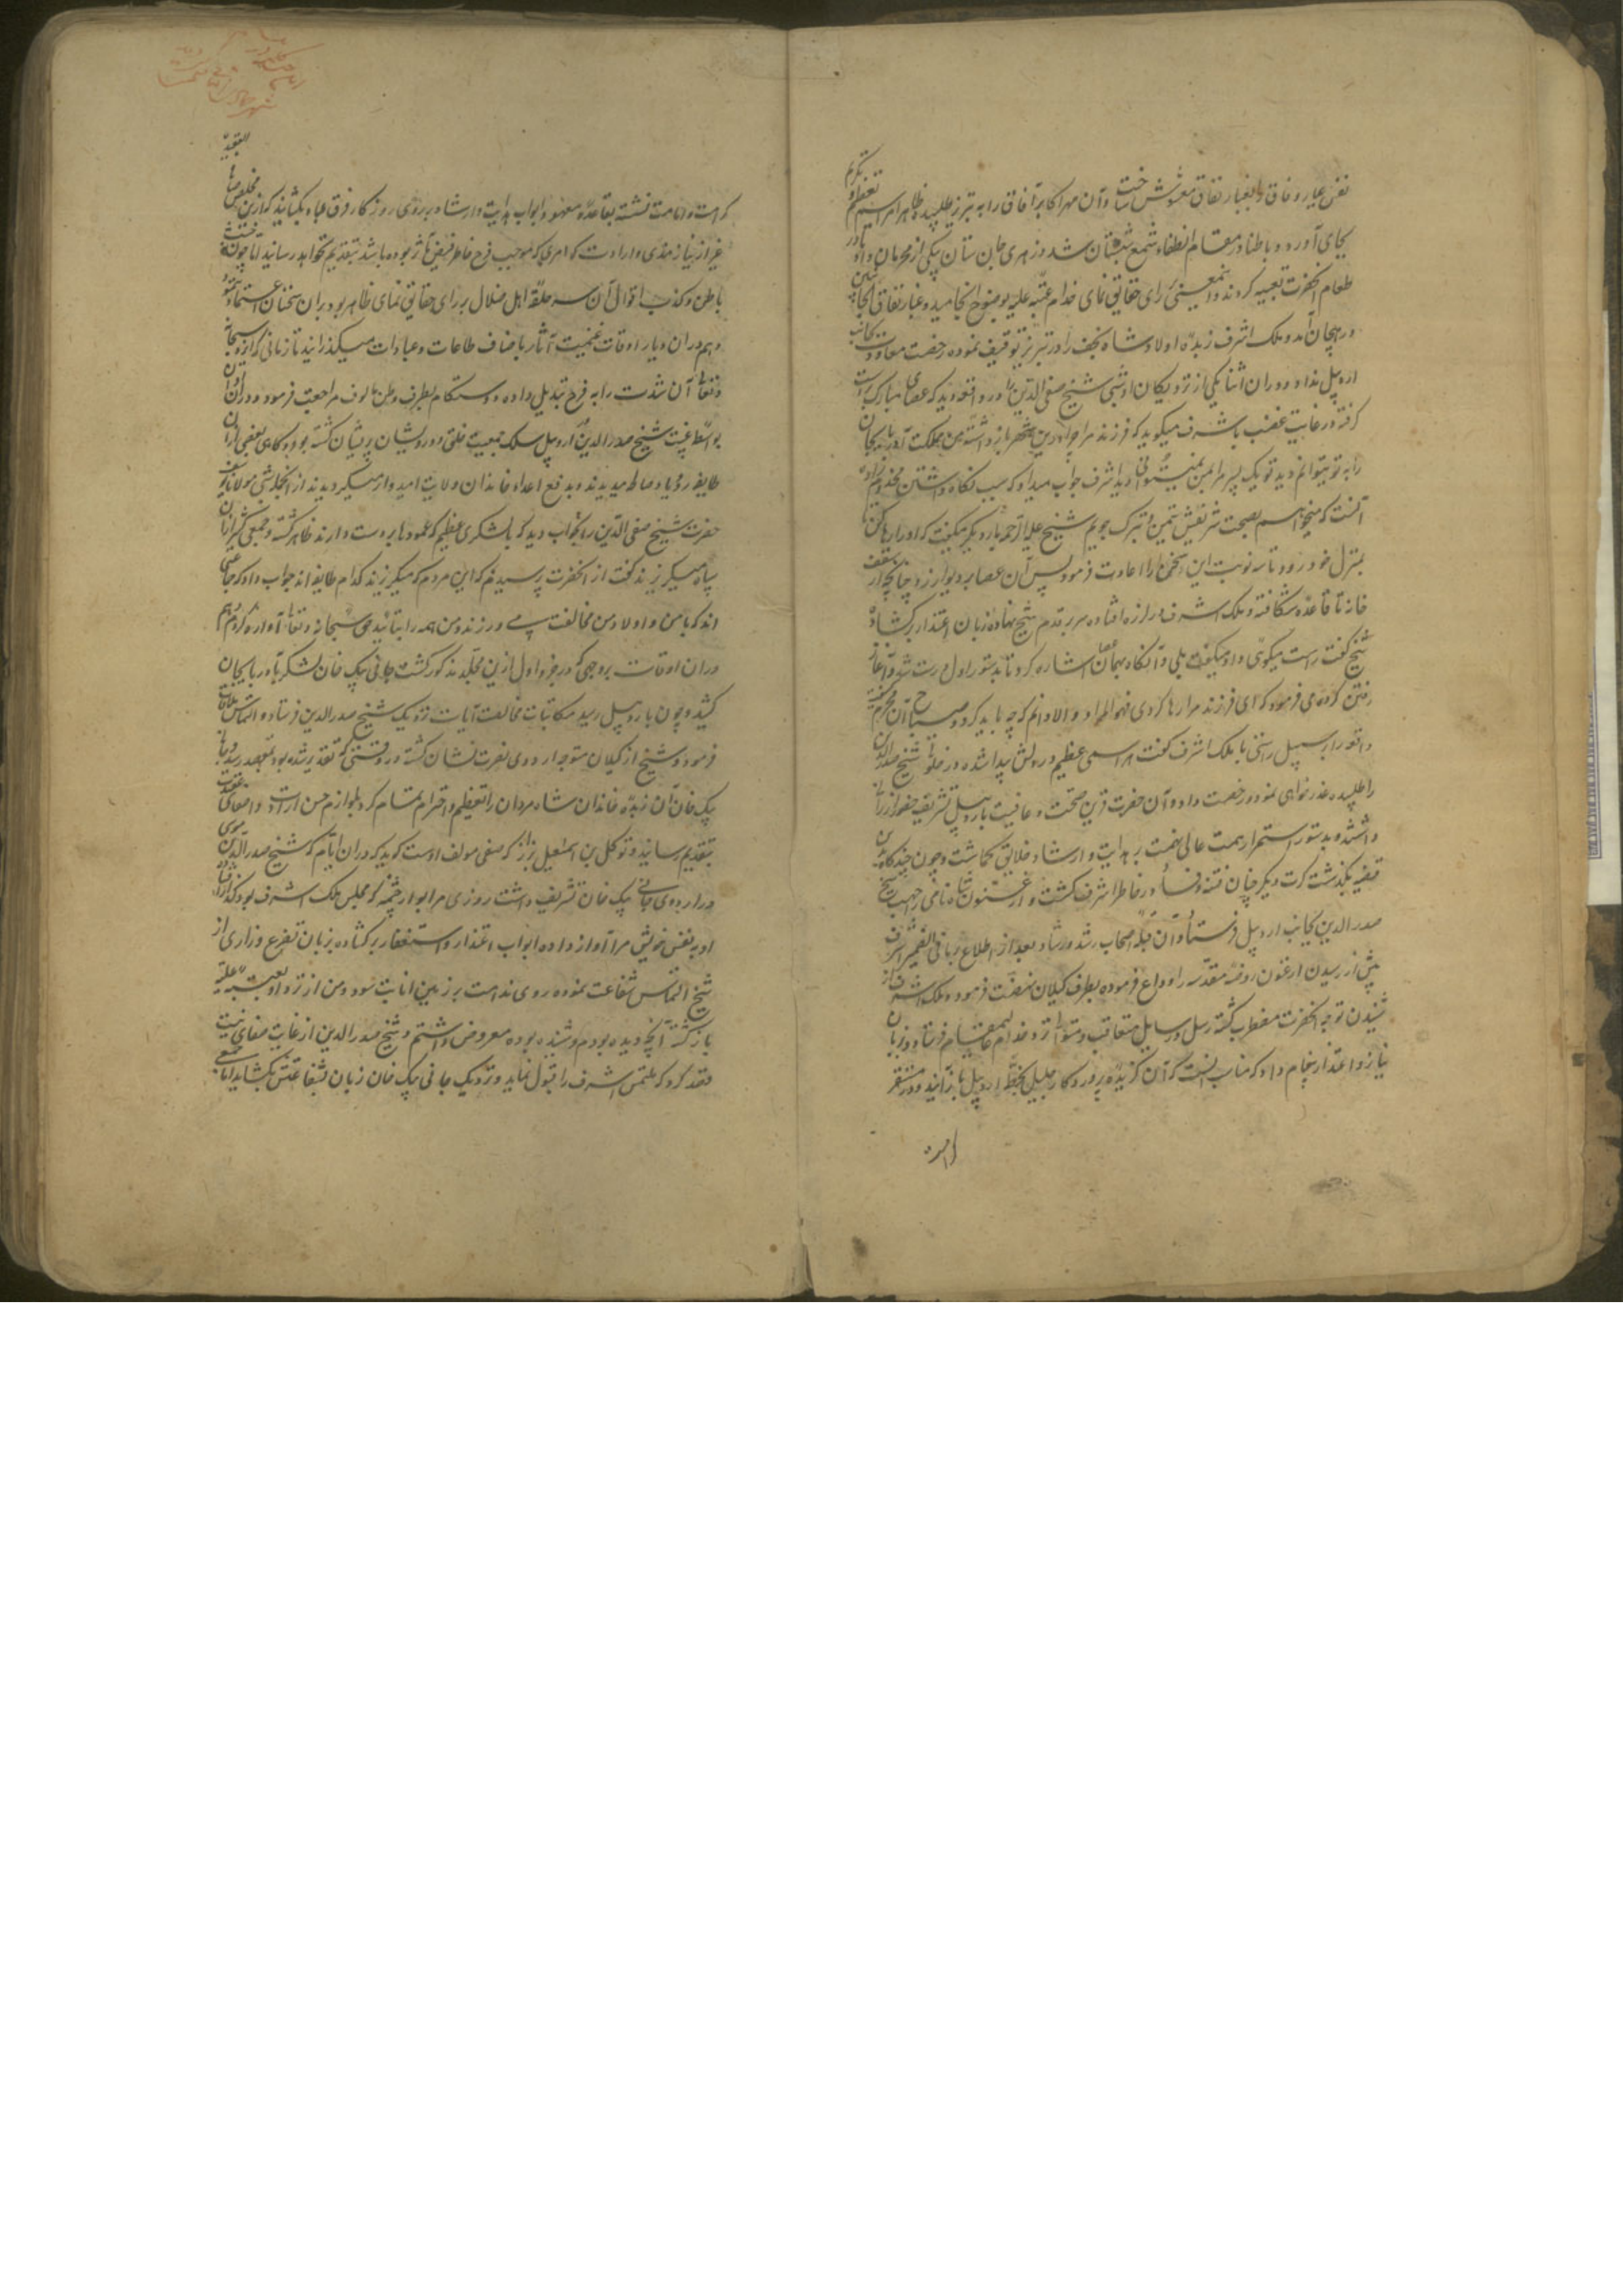 نفس عیار وفاق را بغبار نفاق مغشوش ساخت و آن مهر اکابر آفاق را به تبریز طلبیده ظاهرا مراسم تعظیم و تکریم
بجای آورد و باطنا در مقام انطفاء شمع شبستان شد و زهری جان ستان بیکی از محرمان داد تا در
طعام آنحضرت تعبیه کردند و اینمعنی برای حقایق نمای خدام عتبه علیه بوضوح انجامید و غبار نفاق
در هیجان آمد و ملک اشرف زبده اولاد شاه نجف را در تبریز توقیف نموده رخصت معاودت بجانب
اردبیل نداد و در آن اثنا یکی از نزدیکان او شبی شیخ صفی الدین را در واقعه دید که عصای مبارک بدست
گرفته در غایت غضب باشرف میگوید که فرزند مرا چرا درین شهر باز داشته من مملکت آذربایجان
را به تو بتوانم دید تو یک پسر مرا بمن نمیتوانی دید اشرف جواب میداد که سبب نگاه داشتن مخدوم زاده
آنست که میخواهیم بصحبت شریفش تیمن و تبرک جویم شیخ علیه الرحمه بار دیگر میگفت که او را رها کن تا
بمنزل خود رود تا سه نوبت این سخن را اعادت فرمود پس آن عصا بر دیوار زد چنانچه از سقف
خانه تا قاعده شکافته و ملک اشرف در لرزه افتاده سر بر قدم شیخ نهاده زبان اعتذار بر گشاد
شیخ گفت راست میگوئی و او میگفت بلی و آنگاه بهمان عصا اشاره کرد تا بدستور اول درست شد و آغاز
رفتن کرده می فرمود که ای فرزند مرا رها کردی فهو المراد و الا دانم که چه باید کرد و صباح آن محرم
واقعه را بر سبیل راستی با ملک اشرف گفت هراسی عظیم در دلش پیدا شده در خلوت شیخ صدر الدین
را طلبیده عذر خواهی نمود و رخصت داد و آن حضرت قرین صحت و عافیت باردبیل تشریف حضور ارزانی
داشته و بدستور استمرار همت عالی نهمت بر هدایت و ارشاد خلایق گماشت و چون چندگاه برین
قضیه بگذشت کرت دیگر چنان فتنه و فساد در خاطر اشرف گشت و ارغون شاه نامی را جهت شیخ
صدر الدین بجانب اردبیل فرستاد و آن قبله اصحاب رشد و رشاد بعد از اطلاع بر ما فی الضمیر اشرف
پیش از رسیدن ارغون روضه مقدسه را وداع فرموده بطرف گیلان نهضت فرمود و ملک اشرف از
شنیدن توجه آنحضرت مضطرب گشته رسل و رسایل متعاقب و متواتر نزد خدام عالیمقام فرستاد و زبان
نیاز و اعتذار پیغام داد که مناسب آنست که آن گزیده پروردگار جلیل بخطه اردبیل باز آیند و در مستقر
کرامت و امامت نشسته بقاعده معهود ابواب هدایت و ارشاد بر روی روزگار فرق عباد بگشایند که ازین مخلص
غیر از نیازمندی و ارادت که امری که موجب فرح خاطر فیض مآثر بوده باشد بتقدیم نخواهد رسانید اما چون خبث
باطن و کذب اقوال آن سر حلقه اهل ضلال بر رای حقایق نمای ظاهر بود بر آن سخنان اعتماد ننمود
و هم در آن دیار اوقات غنیمت آثار باصناف طاعات و عبادات میگذرانید تا زمانی که ایزد سبحانه
و تعالی آن شدت را به فرج تبدیل داده دوستکام بطرف وطن مالوف مراجعت فرمود و در آن اوان
بواسطه غیبت شیخ صدر الدین از اردبیل سلک جمعیت خلق و درویشان پریشان گشته بود و گاهی بعضی از آن
طایفه رؤیاء صالحه میدیدند و بدفع اعداء خاندان ولایت امیدوار میگردیدند از آنجمله شبی مولانا یوسف
حضرت شیخ صفی الدین را بخواب دید که با لشکری عظیم که عمودها بدست دارند ظاهر گشته و جمعی کثیر از آن
سپاه میگریزند گفت از آنحضرت پرسیدم که این مردم که میگریزند کدام طایفه اند جواب داد که جماعتی
اند که با من و اولاد من مخالفت می ورزند و من همه را بتائید حق سبحانه و تعالی آواره کردم و هم
در آن اوقات بروجهی که در جزو اول ازین مجلد مذکور گشت جانی بیک خان لشکر بآذربایجان
کشید و چون باردبیل رسید مکاتبات مخالصت آیات نزدیک شیخ صدر الدین فرستاد و التماس ملاقات
فرمود و شیخ از گیلان متوجه اردوی نصرت نشان گشته در وقتی که تقدیر شده بود بمقصد رسید و جانی
بیک خان آن زبده خاندان شاه مردان را تعظیم و احترام تمام کرد و لوازم حسن ارادت و صفای عقیدت
بتقدیم رسانید و توکل بن اسمعیل بزاز که صفی مولف اوست گوید که در آن ایام که شیخ صدر الدین موسی
در اردوی جانی بیک خان تشریف داشت روزی مرا بر در خیمه که مجلس ملک اشرف بود گذر افتاد
او به نفس خویش مرا آواز داده ابواب اعتذار و استغفار بر گشاده بزبان تضرع و زاری از
شیخ التماس شفاعت نموده روی ندامت بر زمین انابت سود و من از نزد او بعتبه علیه
باز گشته آنچه دیده بودم و شنیده بوده معروض داشتم و شیخ صدر الدین از غایت صفای نیت
قصد کرد که ملتمس اشرف را قبول نماید و نزدیک جانی بیک خان زبان شفاعتش بگشاید اما جمعی